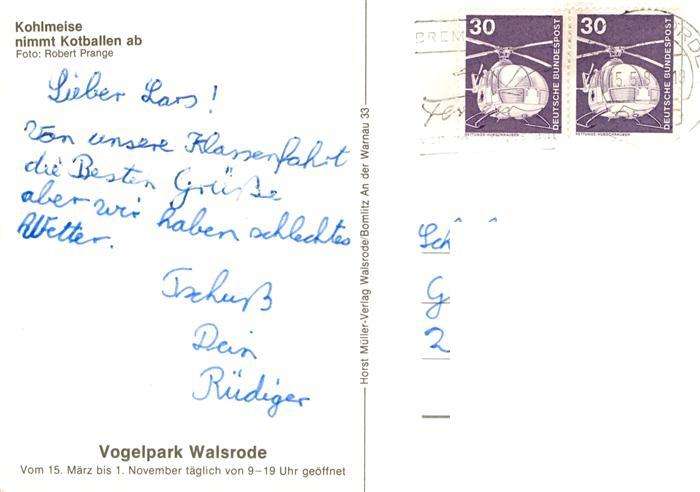 Kohlmeise
nimmt Kotballen ab
Foto: Robert Prange
Lieber Lars!
Von unsere Klassenfahrt
die Besten Grüße
aber wir haben schlechtes
Wetter.
Tschuß
Dein
Rüdiger
Vogelpark Walsrode
Vom 15. März bis 1. November täglich von 9–19 Uhr geöffnet
Horst Müller-Verlag Walsrode/Bomlitz An der Warnau 33
30
DEUTSCHE BUNDESPOST
30
DEUTSCHE BUNDESPOST
Sch
G
2